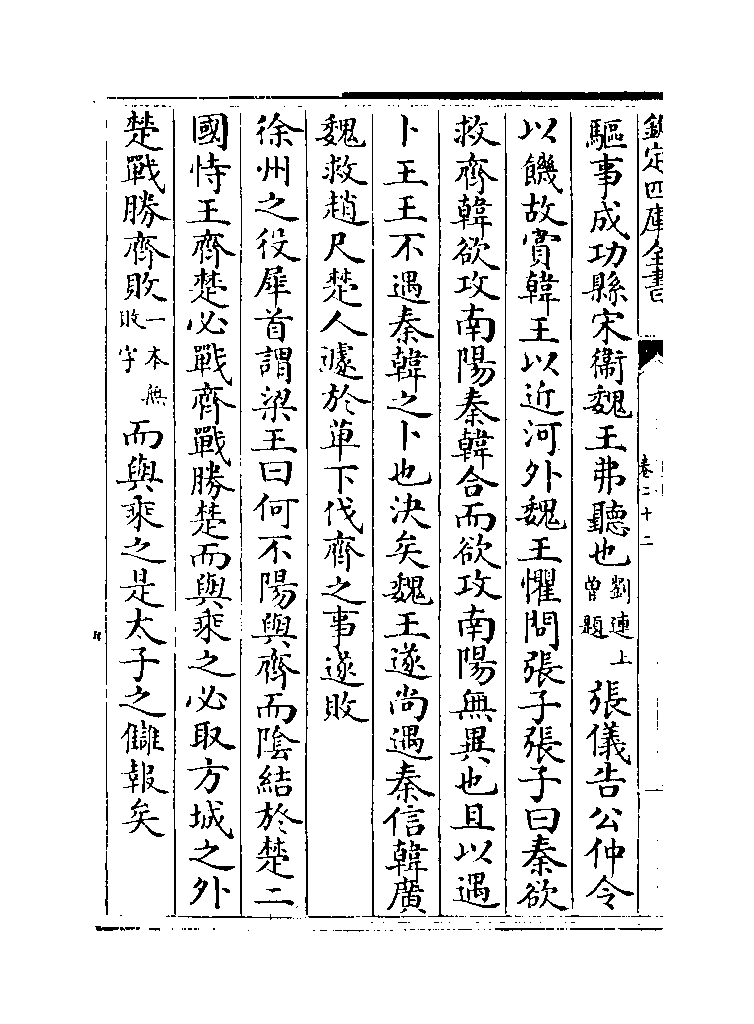 欽定四庫全書
卷二十二
驅事成功縣宋衞魏王弗聽也劉連上曽題張儀告公仲令
以饑故賞韓王以近河外魏王懼問張子張子曰秦欲
救齊韓欲攻南陽秦韓合而欲攻南陽無異也且以遇
卜王王不遇秦韓之卜也決矣魏王遂尚遇秦信韓廣
魏救趙尺楚人遽於萆下伐齊之事遂敗
徐州之役犀首謂梁王曰何不陽與齊而隂結於楚二
國恃王齊楚必戰齊戰勝楚而與乘之必取方城之外
楚戰勝齊敗一本無敗字而與乘之是太子之讎報矣